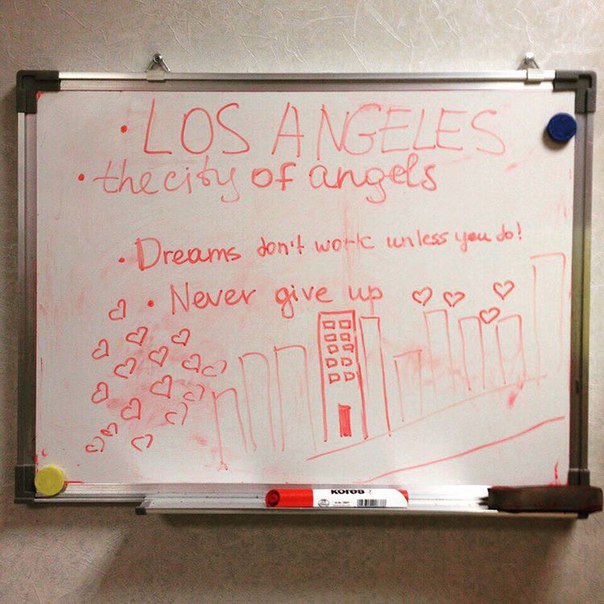 • LOS ANGELES
• the city of angels
• Dreams don't work unless you do!
• Never give up
Kores